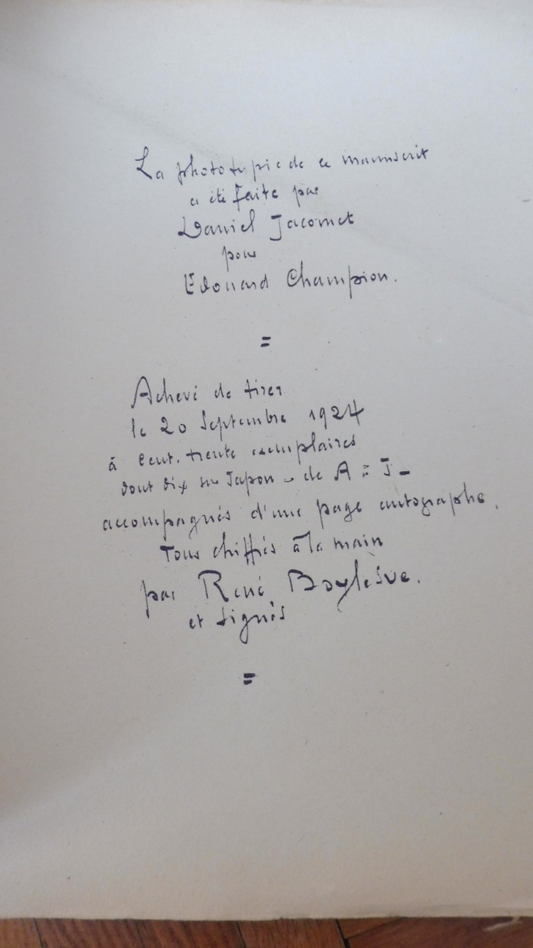 La phototypie de ce manuscrit
a été faite par
Daniel Jacomet
pour
Edouard Champion.
=
Achevé de tirer
le 20 Septembre 1924
à cent. trente exemplaires
dont dix sur Japon - de A = J -
accompagnés d'une page autographe.
Tous chiffrés à la main
par René Boylesve.
et signés
=